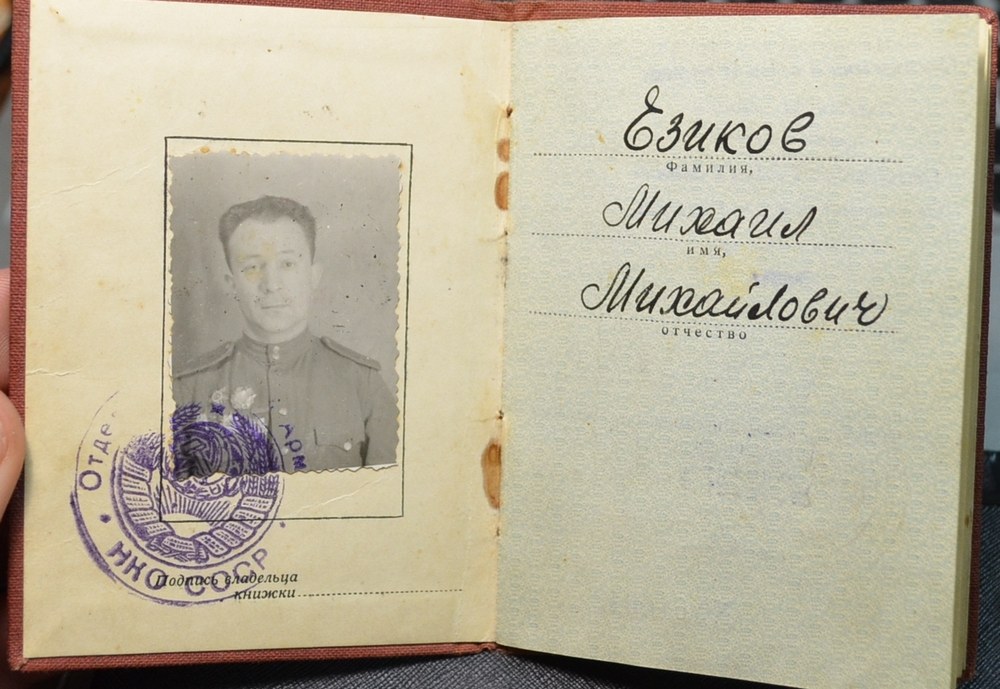 Отде Арм
НКО СССР
Подпись владельца
книжки
Езиков
Фамилия,
Михаил
имя,
Михайлович
отчество